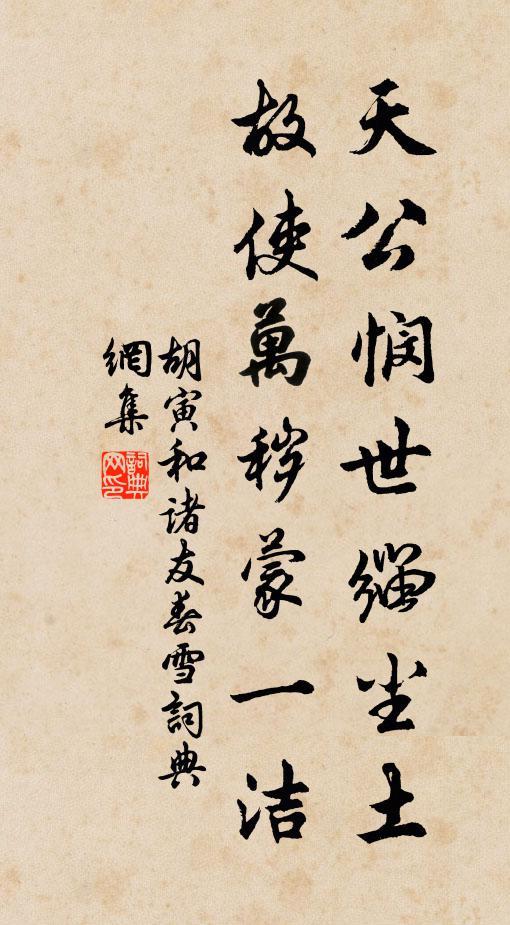 天公憫世緇尘土
故使萬秽蒙一洁
胡寅和诸友春雪詞典
網集
詞典网印